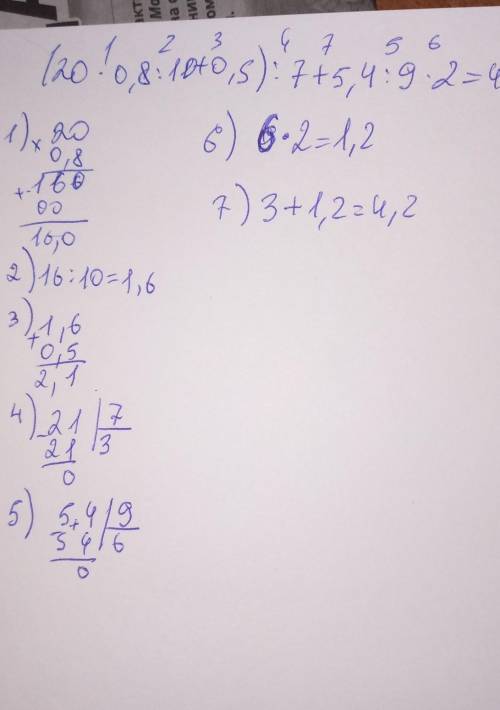 1 2 3 4 7 5 6
(20·0,8:10+0,5):7+5,4:9·2=4
1) ×20
0,8
+160
00
16,0
2) 16:10=1,6
3) +1,6
0,5
2,1
4) -21|7
21 3
0
5) 5,4|9
54 6
0
6) 6·2=1,2
7) 3+1,2=4,2